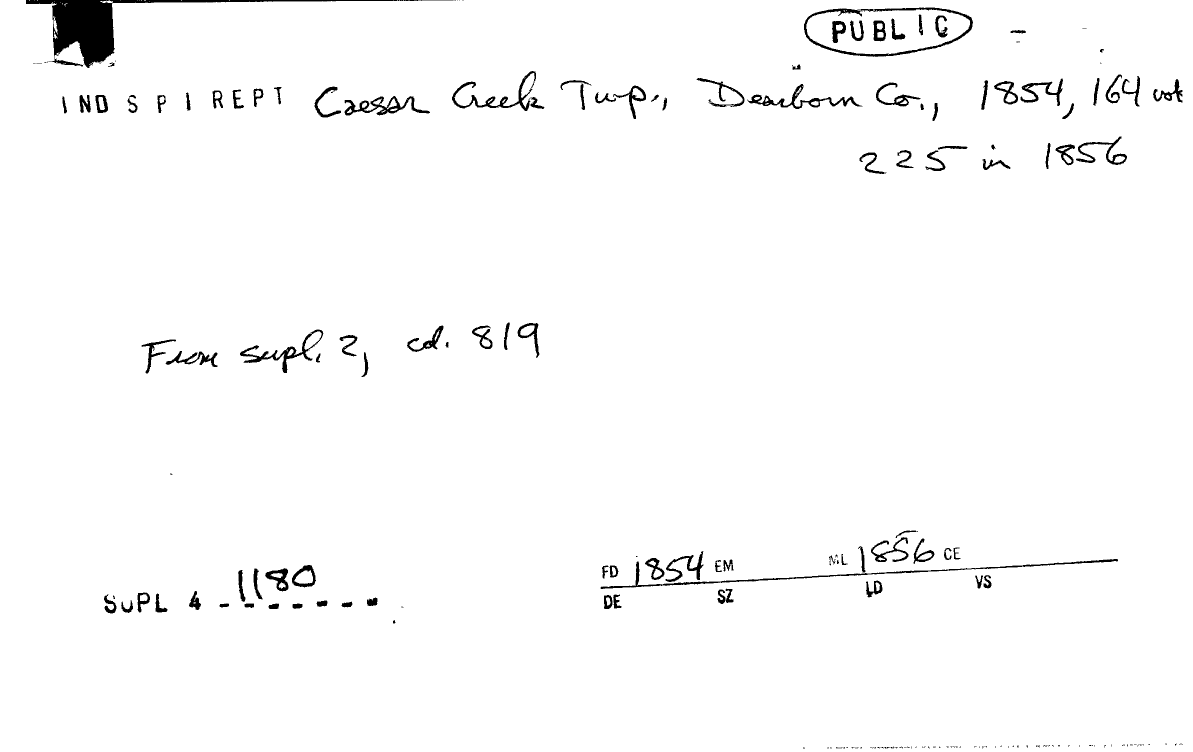 PUBLIC
IND SPI REPT Caesar Creek Twp., Dearborn Co., 1854, 164 vot
225 in 1856
From supl. 2, cd. 819
SUPL 4 1180
FD 1854 EM ML 1856 CE
DE SZ LD VS